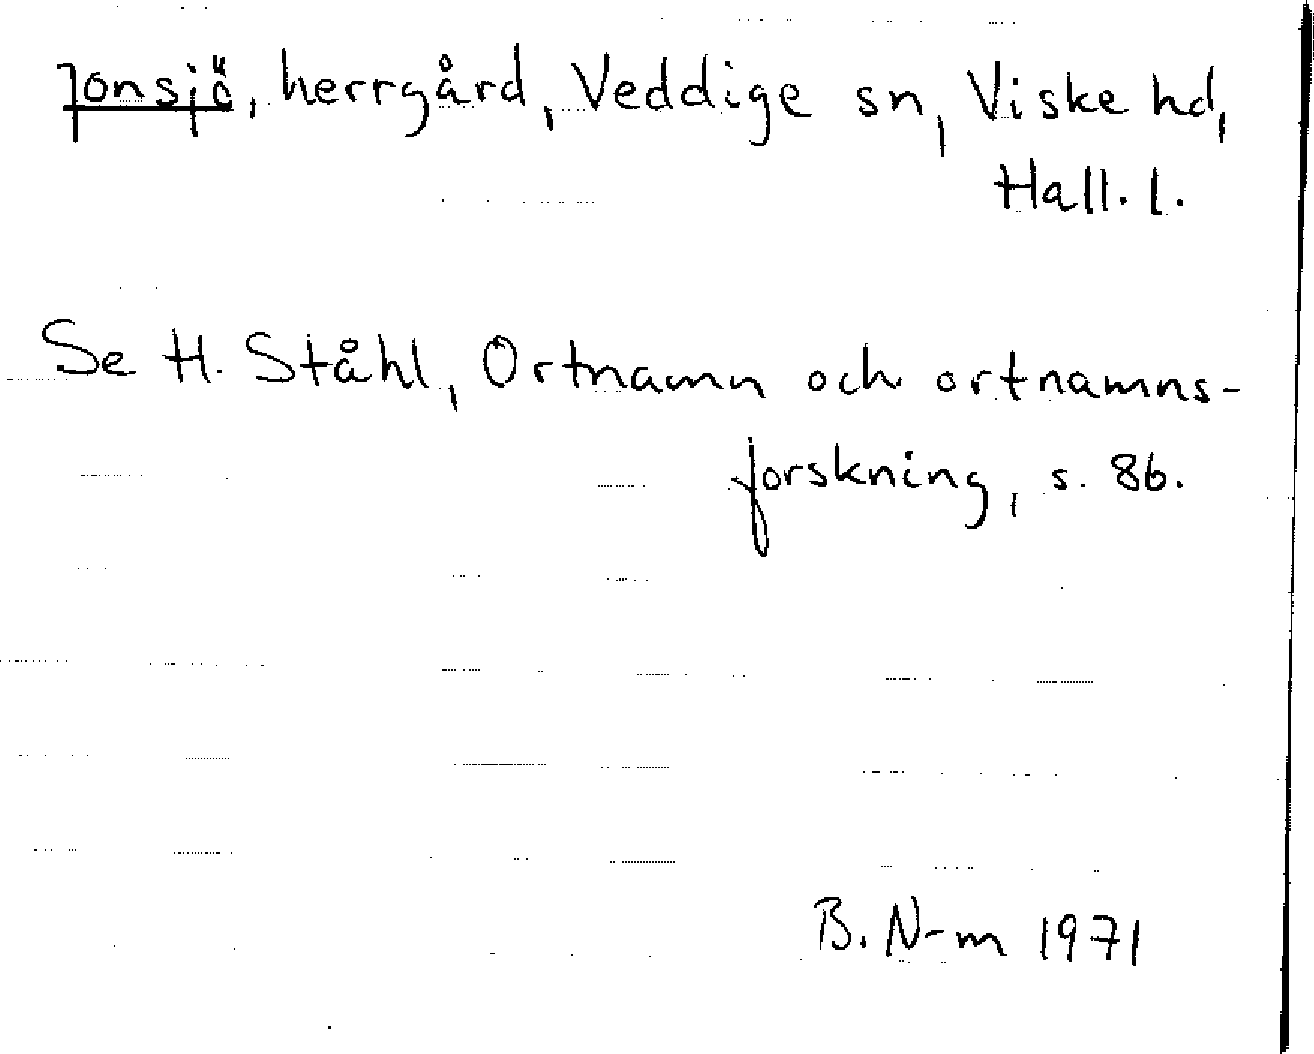 Jonsjö, herrgård, Veddige sn, Viske hd,
Hall. l.
Se H. Ståhl, Ortnamn och ortnamns-
forskning, s. 86.
B. N-m 1971